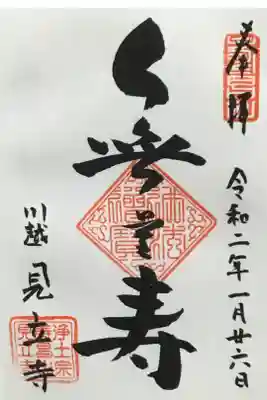 奉拝
令和二年一月廿六日
無量寿
川越 見立寺
浄土宗
見立寺